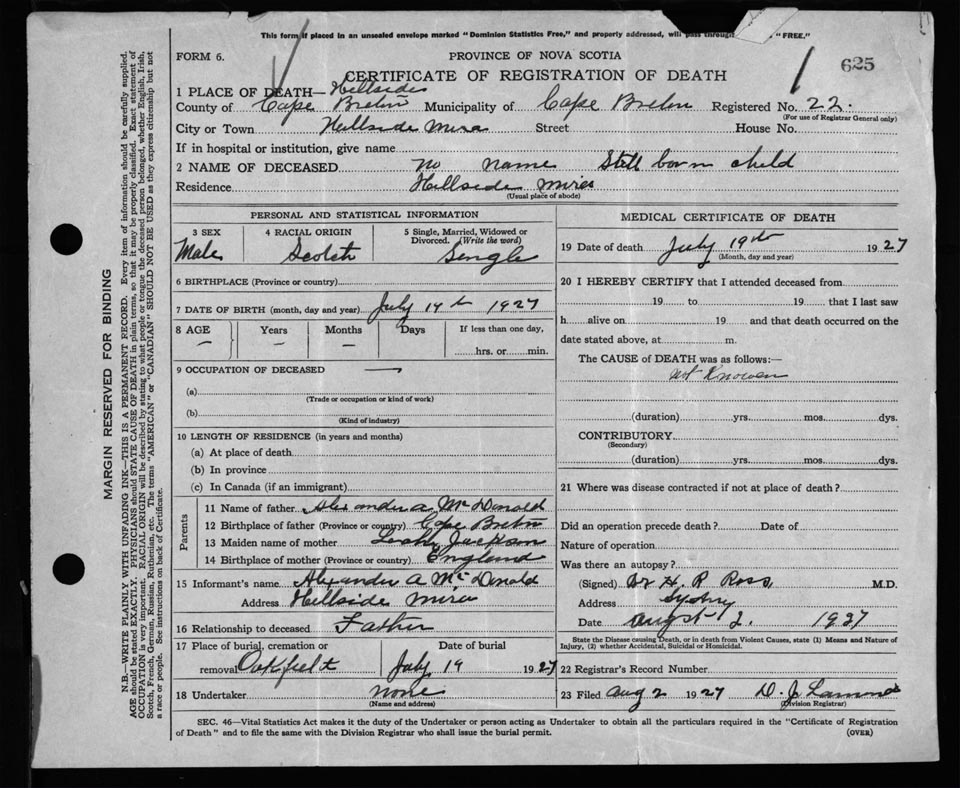 This form if placed in an unsealed envelope marked "Dominion Statistics Free," and properly addressed, will pass through "FREE."
FORM 6.
PROVINCE OF NOVA SCOTIA
CERTIFICATE OF REGISTRATION OF DEATH
625
1 PLACE OF DEATH— Hillside
County of Cape Breton Municipality of Cape Breton Registered No. 22.
(For use of Registrar General only)
City or Town Hillside Mira Street House No.
If in hospital or institution, give name
2 NAME OF DECEASED no name Still born child
Residence Hillside Mira
(Usual place of abode)
PERSONAL AND STATISTICAL INFORMATION
3 SEX 4 RACIAL ORIGIN 5 Single, Married, Widowed or Divorced. (Write the word)
Male Scotch Single
6 BIRTHPLACE (Province or country)
7 DATE OF BIRTH (month, day and year) July 19th 1927
8 AGE Years Months Days If less than one day,
— — — hrs. or min.
9 OCCUPATION OF DECEASED —
(a)
(Trade or occupation or kind of work)
(b)
(Kind of industry)
10 LENGTH OF RESIDENCE (in years and months)
(a) At place of death
(b) In province
(c) In Canada (if an immigrant)
Parents
11 Name of father Alexander A Mc Donald
12 Birthplace of father (Province or country) Cape Breton
13 Maiden name of mother Jackson
14 Birthplace of mother (Province or country) England
15 Informant's name Alexander A Mc Donald
Address Hillside Mira
16 Relationship to deceased Father
17 Place of burial, cremation or Date of burial
removal Oakfield July 19 1927
18 Undertaker none
(Name and address)
MEDICAL CERTIFICATE OF DEATH
19 Date of death July 19th 1927
(Month, day and year)
20 I HEREBY CERTIFY that I attended deceased from
19 to 19 that I last saw
h alive on 19 and that death occurred on the
date stated above, at m.
The CAUSE OF DEATH was as follows:—
not Knowen
(duration) yrs. mos. dys.
CONTRIBUTORY
(Secondary)
(duration) yrs. mos. dys.
21 Where was disease contracted if not at place of death?
Did an operation precede death? Date of
Nature of operation
Was there an autopsy?
(Signed) Dr H. R Ross, M.D.
Address Sydney
Date August 2. 1927
State the Disease causing Death, or in death from Violent Causes, state (1) Means and Nature of
Injury, (2) whether Accidental, Suicidal or Homicidal.
22 Registrar's Record Number
23 Filed Aug 2 1927 D. J.
(Division Registrar)
SEC. 46—Vital Statistics Act makes it the duty of the Undertaker or person acting as Undertaker to obtain all the particulars required in the "Certificate of Registration
of Death" and to file the same with the Division Registrar who shall issue the burial permit.
(OVER)
MARGIN RESERVED FOR BINDING
N.B.—WRITE PLAINLY WITH UNFADING INK—THIS IS A PERMANENT RECORD. Every item of information should be carefully supplied.
AGE should be stated EXACTLY. PHYSICIANS should STATE CAUSE OF DEATH in plain terms, so that it may be properly classified. Exact statement of
OCCUPATION is very important. RACIAL ORIGIN will be described by stating to what people or tongue the deceased person belonged, whether English, Irish,
Scotch, French, German, Russian, Ruthenian, etc. The terms "AMERICAN" or "CANADIAN" SHOULD NOT BE USED as they express citizenship but not
a race or people. See instructions on back of Certificate.